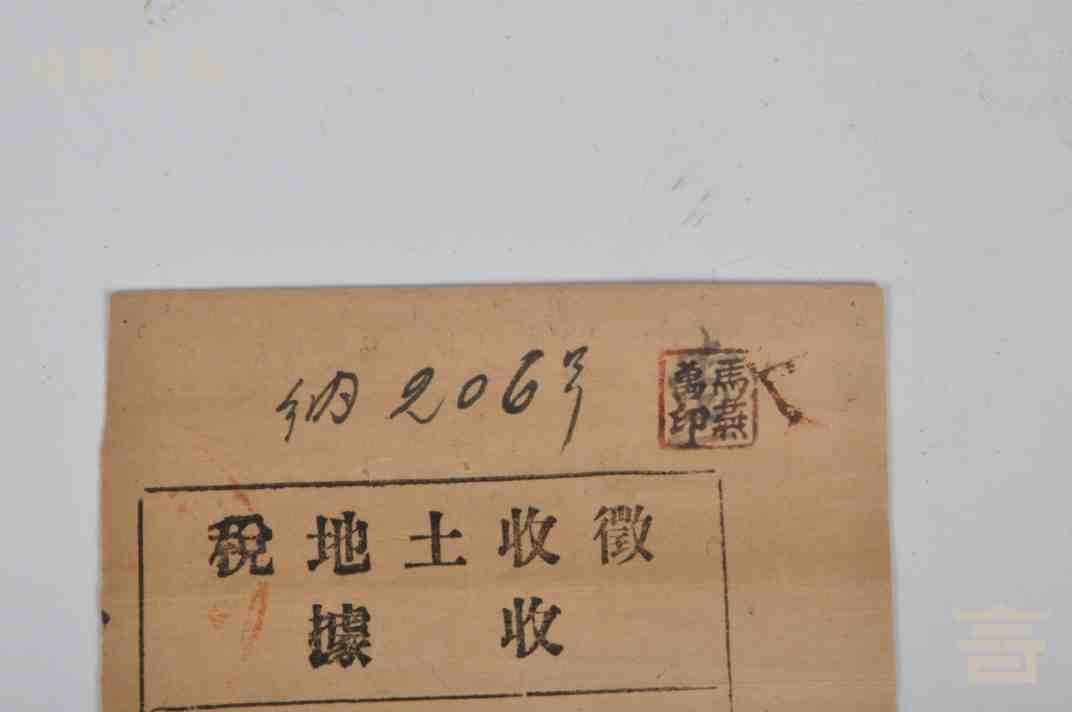 纳206号
馬燕萬印
徵收土地稅
收據